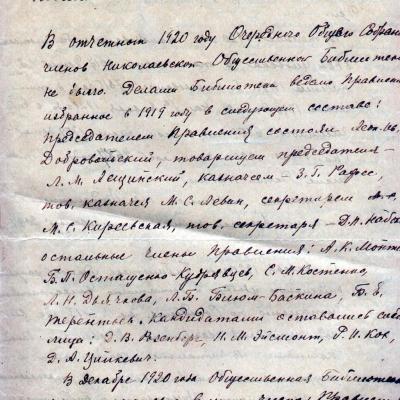 В отчетном 1920 году Очередного Общего Собрания
членов Николаевской Общественной Библиотеки
не было. Делами Библиотеки ведало Правление
избранное в 1919 году в следующем составе:
председателем Правления состоял
Добровольский, товарищем председателя –
Л. М. Лещинский, казначеем – З. Г. Рафес,
тов. казначея М. С. Левин, секретарем
М. С. Киреевская, тов. секретаря –
остальные члены Правления: А. К. Монт
Б. П. Осташенко-Кудрявцев, С. М. Костенко,
Л. Н. Дьячкова, Л. Б. Блюм-Баскина, Б. Е.
Терентьев. Кандидатами оставались
лица: Д. В. Розенберг, Н. М. Эйсмонт, Р. И. Кон,
Д. А. Цинкевич.
В декабре 1920 года Общественная Библиотека